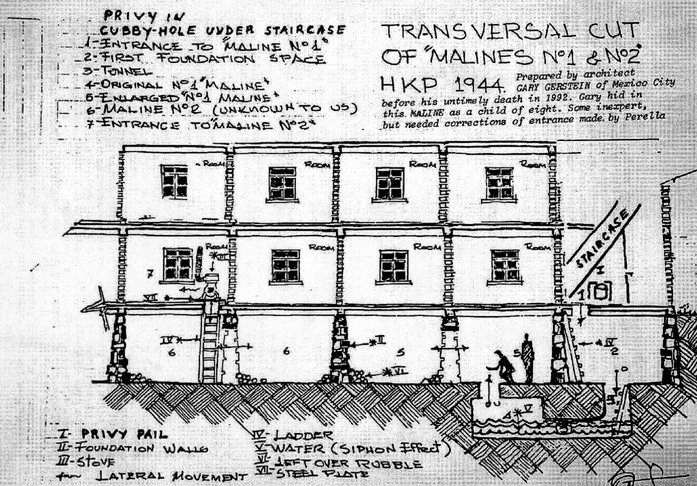 PRIVY IN
CUBBY-HOLE UNDER STAIRCASE
1-ENTRANCE TO "MALINE Nº1"
2-FIRST FOUNDATION SPACE
3-TUNNEL
4-ORIGINAL Nº1 "MALINE"
5-ENLARGED "Nº1 MALINE"
6-MALINE Nº2 (UNKNOWN TO US)
7-ENTRANCE TO "MALINE Nº2"
TRANSVERSAL CUT
OF "MALINES Nº1 & Nº2"
HKP 1944.
Prepared by architect
GARY GERSTEIN of Mexico City
before his untimely death in 1992. Gary hid in
this MALINE as a child of eight. Some inexpert,
but needed corrections of entrance made by Perella
ROOM ROOM ROOM ROOM
ROOM ROOM ROOM ROOM
STAIRCASE
I
7
III
VII
1
IV
6
6
II
5
VI
5
IV
2
3
4
V
I- PRIVY PAIL
II- FOUNDATION WALLS
III- STOVE
for LATERAL MOVEMENT
IV- LADDER
V- WATER (SIPHON EFFECT)
VI- LEFT OVER RUBBLE
VII- STEEL PLATE